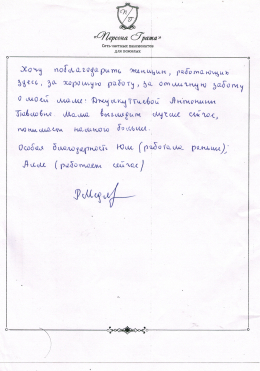 «Персона Гранда»
Сеть частных пансионатов
для пожилых
Хочу поблагодарить женщин, работающих
здесь, за хорошую работу, за отличную заботу
о моей маме:
Павловне. Мама выглядит лучше сейчас,
понимает намного больше.
Особая благодарность Юле (работала раньше);
Алле (работает сейчас)